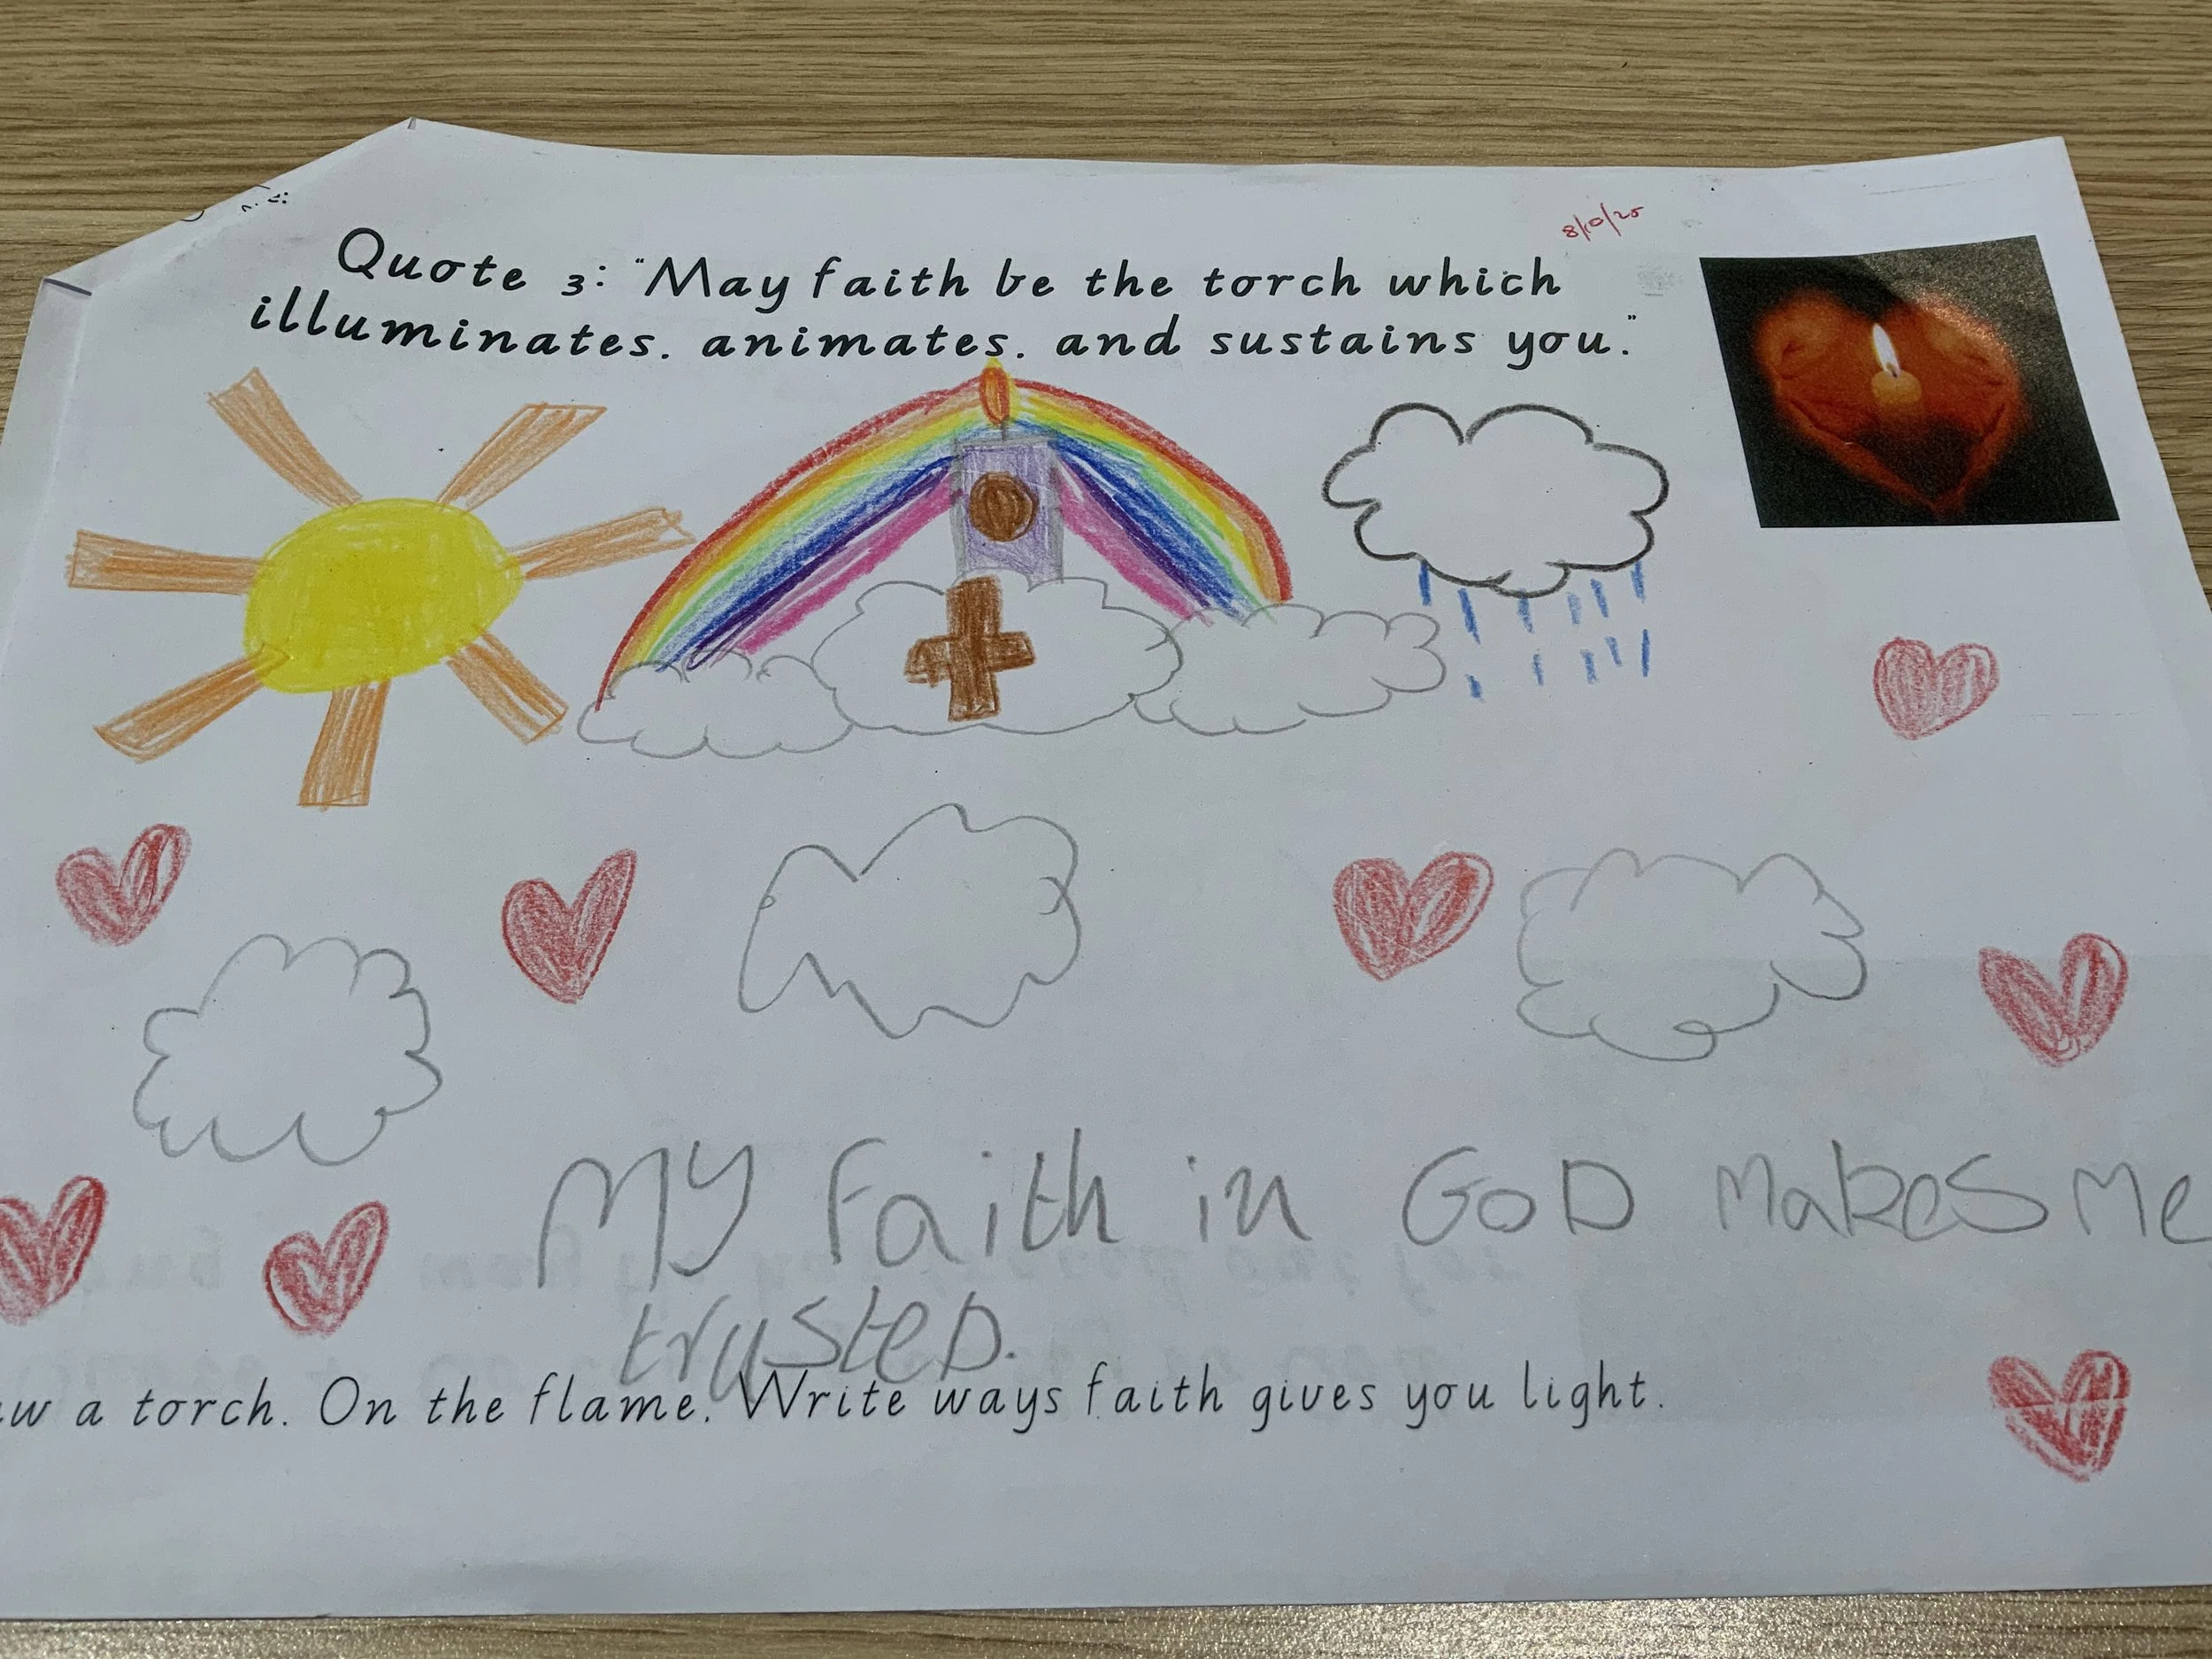 8/10/25
Quote 3: "May faith be the torch which
illuminates. animates. and sustains you."
My Faith in GoD makes me
trusteD.
aw a torch. On the flame. Write ways faith gives you light.